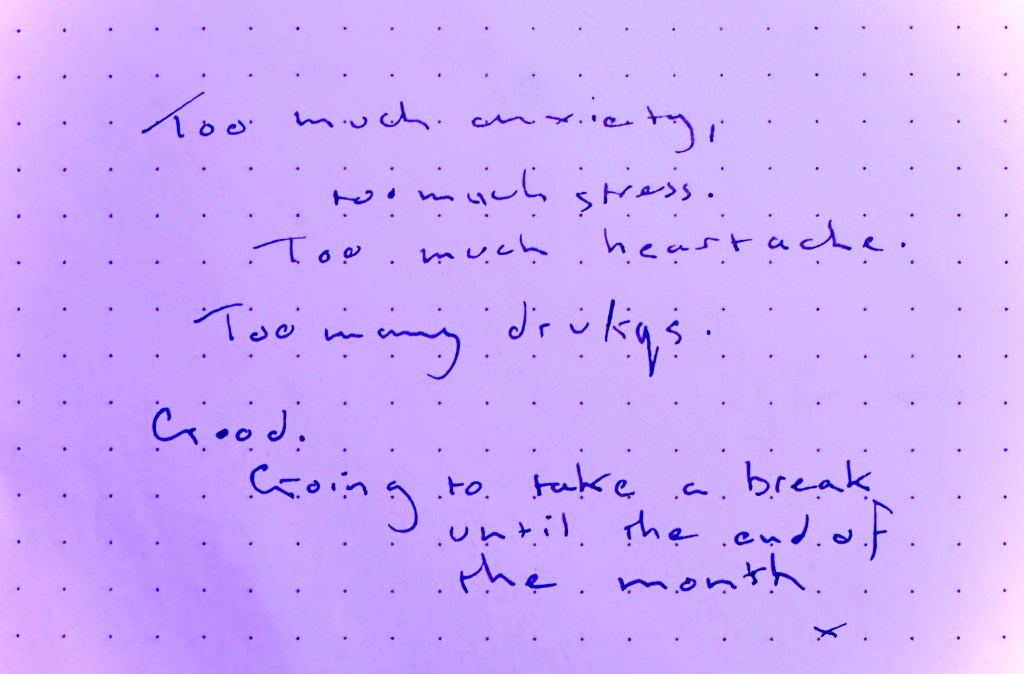 Too much anxiety,
too much stress.
Too much heartache.
Too many drukqs.
Good.
Going to take a break
until the end of
the month
x